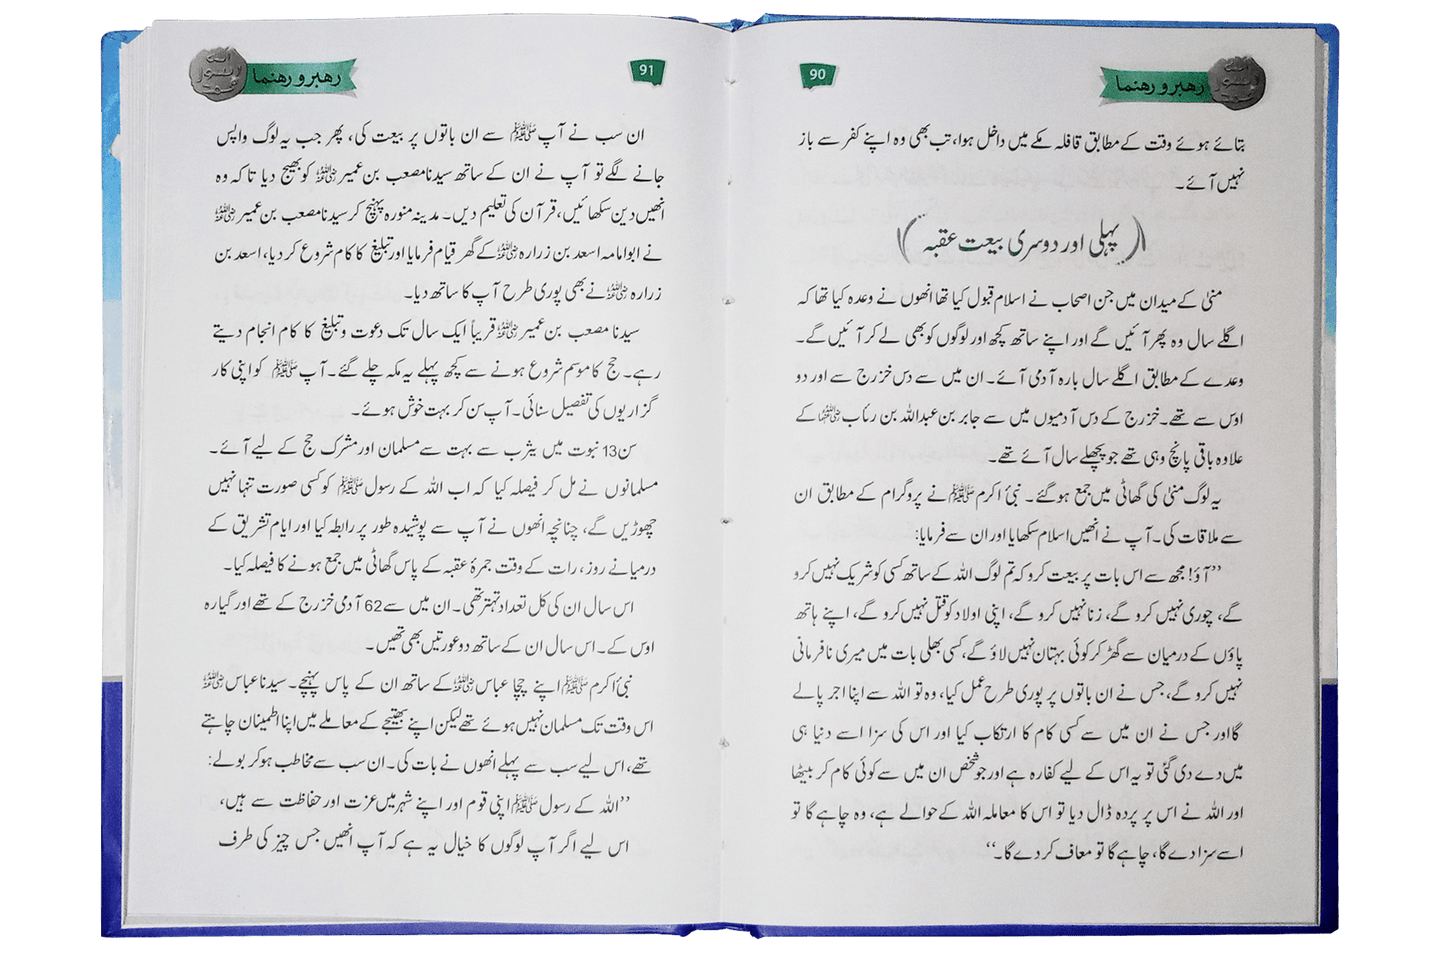 رھبر و رھنما
90
بتائے ہوئے وقت کے مطابق قافلہ مکے میں داخل ہوا، تب بھی وہ اپنے کفر سے باز
نہیں آئے۔
پہلی اور دوسری بیعت عقبہ
منیٰ کے میدان میں جن اصحاب نے اسلام قبول کیا تھا انھوں نے وعدہ کیا تھا کہ
اگلے سال وہ پھر آئیں گے اور اپنے ساتھ کچھ اور لوگوں کو بھی لے کر آئیں گے۔
وعدے کے مطابق اگلے سال بارہ آدمی آئے۔ ان میں سے دس خزرج سے اور دو
اوس سے تھے۔ خزرج کے دس آدمیوں میں سے جابر بن عبداللہ بن رئاب رضی اللہ عنہما کے
علاوہ باقی پانچ وہی تھے جو پچھلے سال آئے تھے۔
یہ لوگ منیٰ کی گھاٹی میں جمع ہوگئے۔ نبیٔ اکرم ﷺ نے پروگرام کے مطابق ان
سے ملاقات کی۔ آپ نے انھیں اسلام سکھایا اور ان سے فرمایا:
’’آؤ! مجھ سے اس بات پر بیعت کرو کہ تم لوگ اللہ کے ساتھ کسی کو شریک نہیں کرو
گے، چوری نہیں کرو گے، زنا نہیں کرو گے، اپنی اولاد کو قتل نہیں کرو گے، اپنے ہاتھ
پاؤں کے درمیان سے گھڑ کر کوئی بہتان نہیں لاؤ گے، کسی بھلی بات میں میری نافرمانی
نہیں کرو گے، جس نے ان باتوں پر پوری طرح عمل کیا، وہ تو اللہ سے اپنا اجر پالے
گا اور جس نے ان میں سے کسی کام کا ارتکاب کیا اور اس کی سزا اسے دنیا ہی
میں دے دی گئی تو یہ اس کے لیے کفارہ ہے اور جو شخص ان میں سے کوئی کام کر بیٹھا
اور اللہ نے اس پر پردہ ڈال دیا تو اس کا معاملہ اللہ کے حوالے ہے، وہ چاہے گا تو
اسے سزا دے گا، چاہے گا تو معاف کر دے گا۔‘‘
رھبر و رھنما
91
ان سب نے آپ ﷺ سے ان باتوں پر بیعت کی، پھر جب یہ لوگ واپس
جانے لگے تو آپ نے ان کے ساتھ سیدنا مصعب بن عمیر رضی اللہ عنہ کو بھیج دیا تاکہ وہ
انھیں دین سکھائیں، قرآن کی تعلیم دیں۔ مدینہ منورہ پہنچ کر سیدنا مصعب بن عمیر رضی اللہ عنہ
نے ابوامامہ اسعد بن زرارہ رضی اللہ عنہ کے گھر قیام فرمایا اور تبلیغ کا کام شروع کر دیا، اسعد بن
زرارہ رضی اللہ عنہ نے بھی پوری طرح آپ کا ساتھ دیا۔
سیدنا مصعب بن عمیر رضی اللہ عنہ قریباً ایک سال تک دعوت و تبلیغ کا کام انجام دیتے
رہے۔ حج کا موسم شروع ہونے سے کچھ پہلے یہ مکہ چلے گئے۔ آپ ﷺ کو اپنی کار
گزاریوں کی تفصیل سنائی۔ آپ سن کر بہت خوش ہوئے۔
سن 13 نبوت میں یثرب سے بہت سے مسلمان اور مشرک حج کے لیے آئے۔
مسلمانوں نے مل کر فیصلہ کیا کہ اب اللہ کے رسول ﷺ کو کسی صورت تنہا نہیں
چھوڑیں گے، چنانچہ انھوں نے آپ سے پوشیدہ طور پر رابطہ کیا اور ایام تشریق کے
درمیانے روز، رات کے وقت جمرۂ عقبہ کے پاس گھاٹی میں جمع ہونے کا فیصلہ کیا۔
اس سال ان کی کل تعداد تہتر تھی۔ ان میں سے 62 آدمی خزرج کے تھے اور گیارہ
اوس کے۔ اس سال ان کے ساتھ دو عورتیں بھی تھیں۔
نبیٔ اکرم ﷺ اپنے چچا عباس رضی اللہ عنہ کے ساتھ ان کے پاس پہنچے۔ سیدنا عباس رضی اللہ عنہ
اس وقت تک مسلمان نہیں ہوئے تھے لیکن اپنے بھتیجے کے معاملے میں اپنا اطمینان چاہتے
تھے، اس لیے سب سے پہلے انھوں نے بات کی۔ ان سب سے مخاطب ہو کر بولے:
’’اللہ کے رسول ﷺ اپنی قوم اور اپنے شہر میں عزت اور حفاظت سے ہیں،
اس لیے اگر آپ لوگوں کا خیال یہ ہے کہ آپ انھیں جس چیز کی طرف